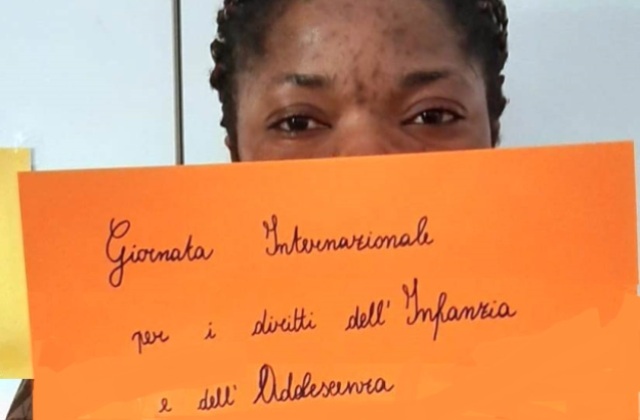 Giornata Internazionale
per i diritti dell' Infanzia
e dell' Adolescenza